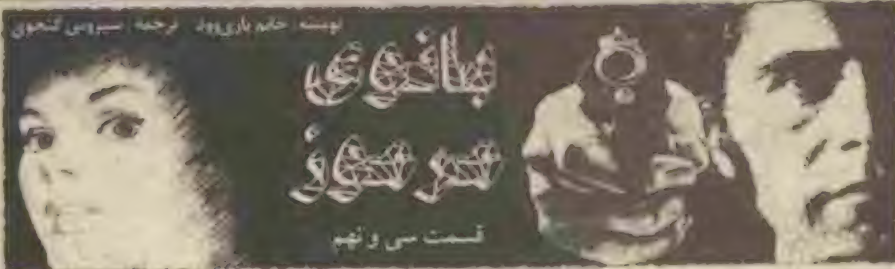 نویسنده: خانم باری‌وود ترجمه: سیروس گنجوی
بانوی
مرموز
قسمت سی و نهم